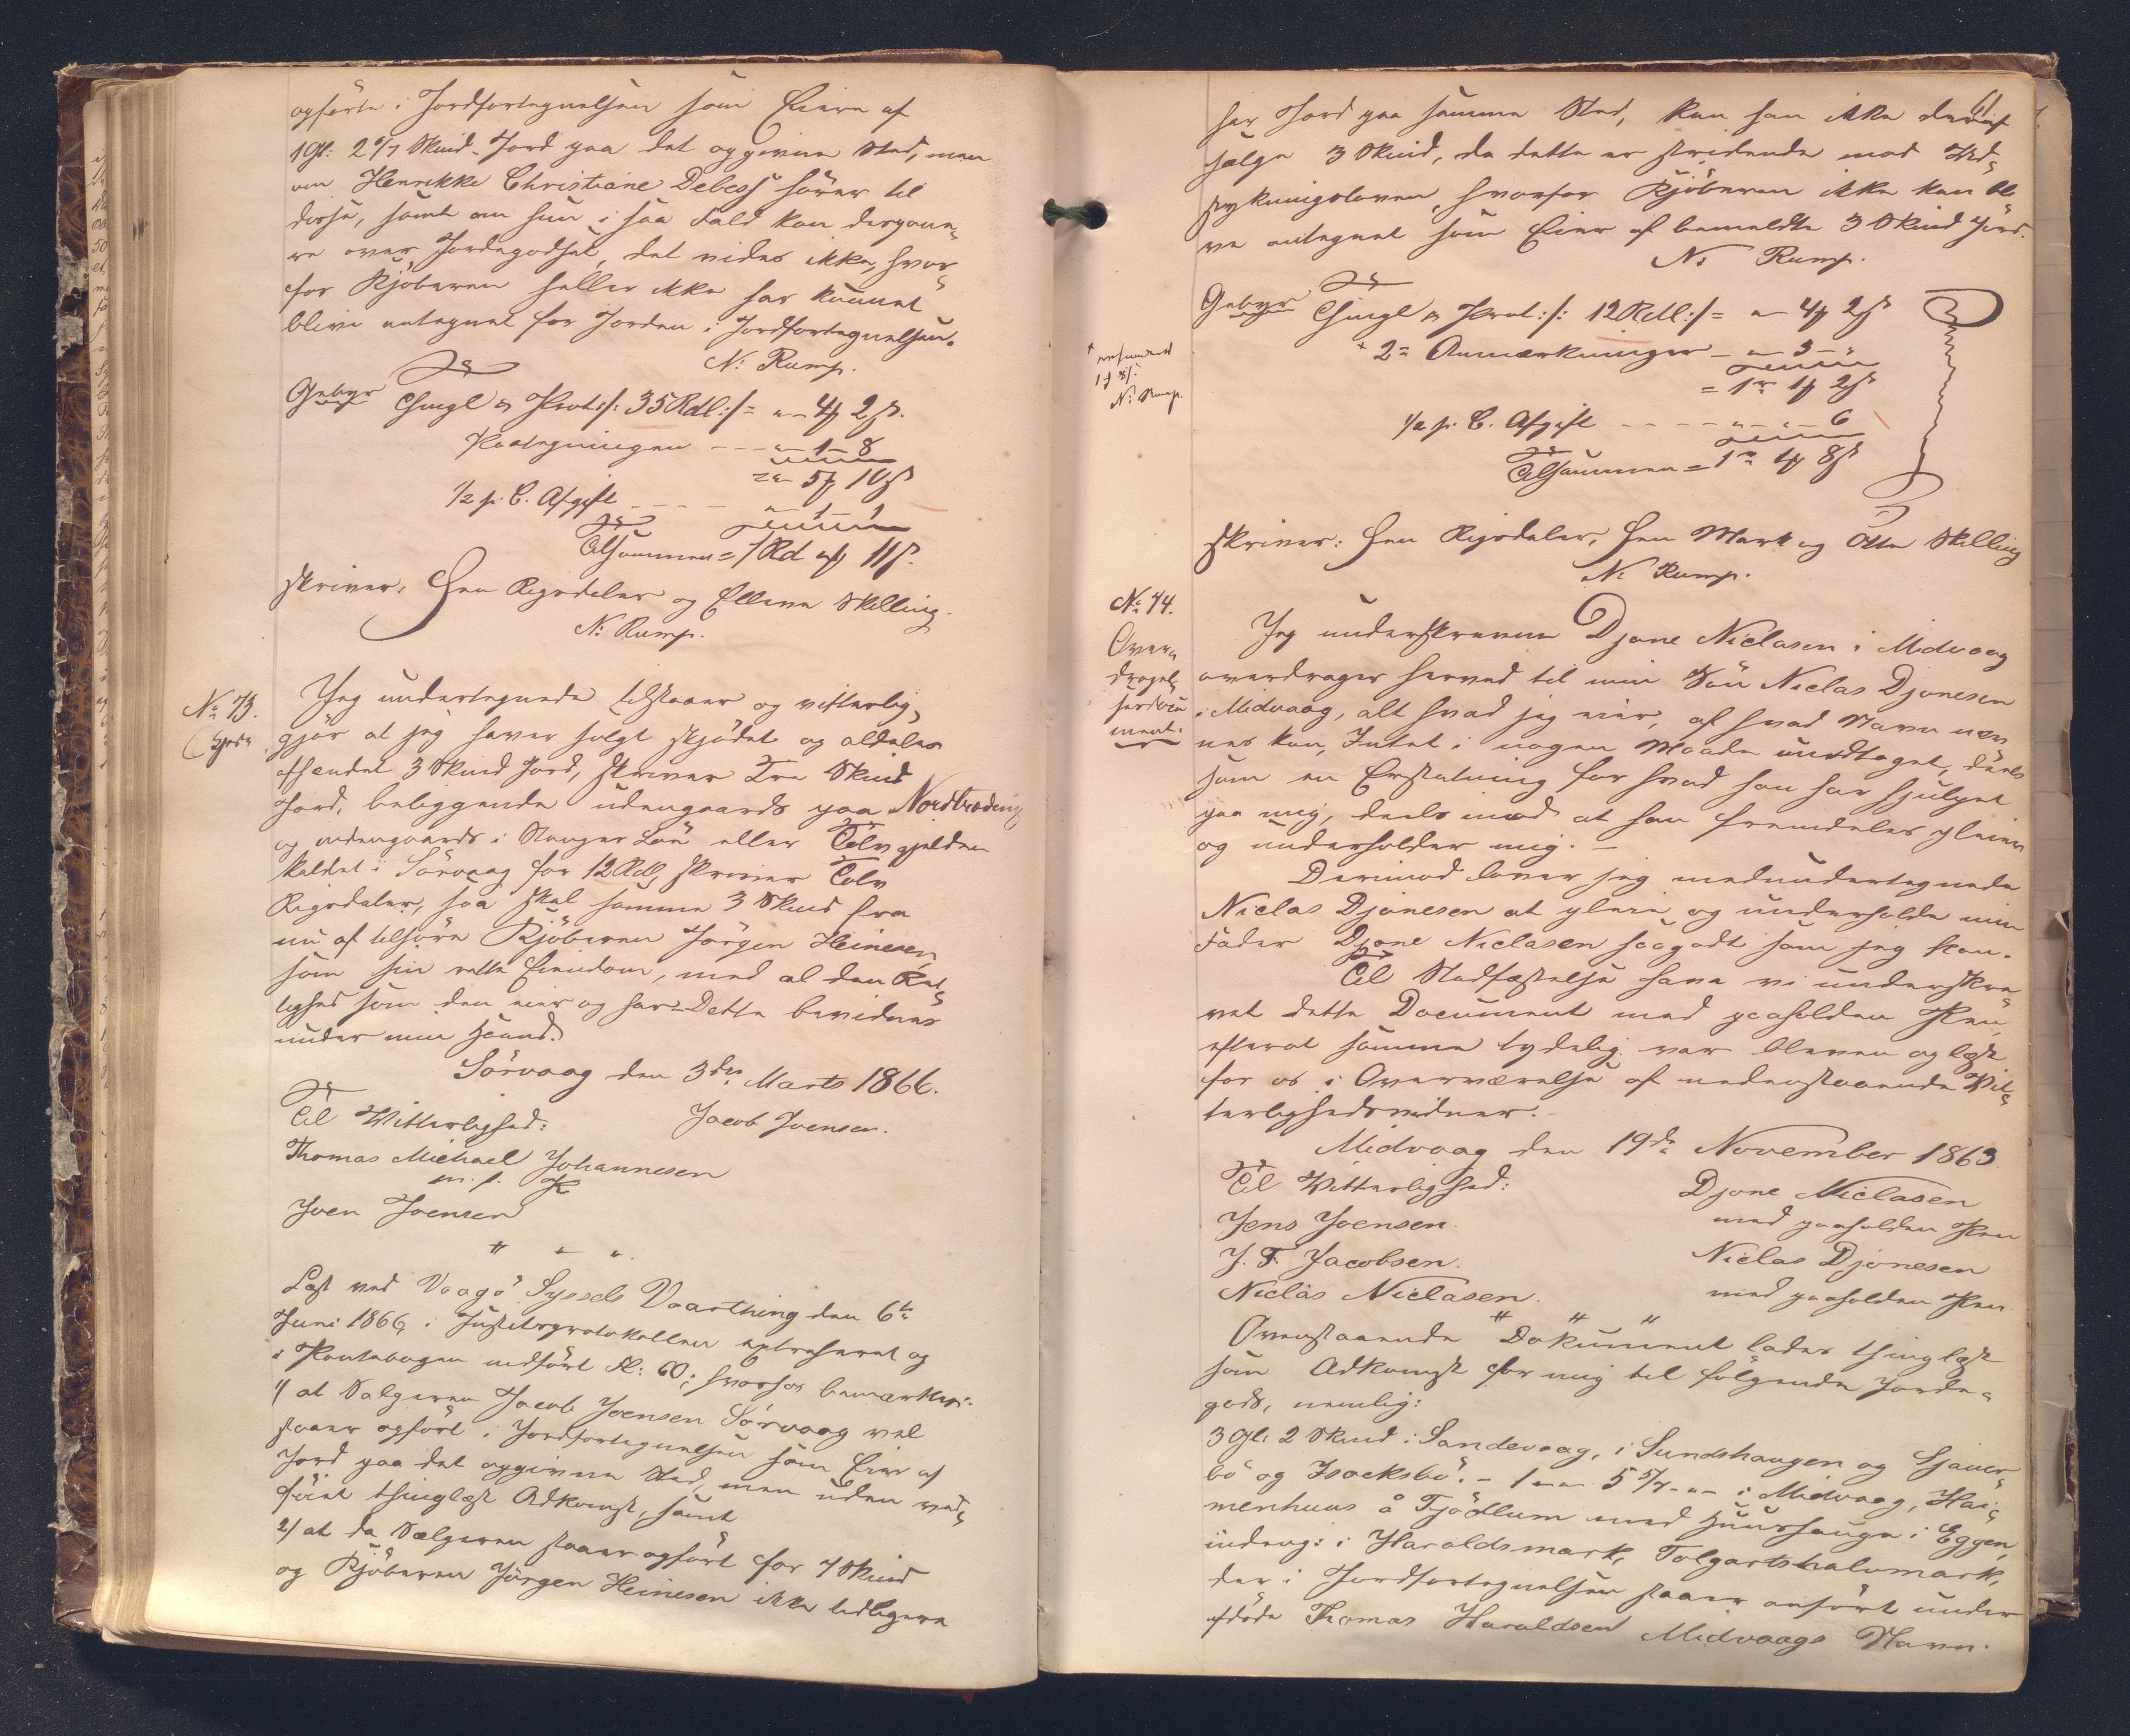 opførte i Jordfortegnelsen som Eiere af
1 Gl: 2 6/7 Skind Jord paa det opgivne Sted, men
om Henrikke Christiane Debess hører til
disse, samt om hun i saa Fald kan dispone-
re over Jordegodset, det vides ikke, hvor-
for Kjøberen heller ikke har kunnet
blive antegnet for Jorden i Jordfortegnelsen.
N: Rump.
Gebyr Thingl & Prot:/: 35 Rdl:/= " — 4 ꝟ 2 ß.
Paategningen - - - " — 1 — 8
= " — 5 ꝟ 10 ß
1/2 p. C. Afgift - - - - " — 1 — 1
Tilsammen = 1 Rd " ꝟ 11 ß.
skriver: Een Rigsdaler og Elleve Skilling.
N: Rump.
No 73.
Skjøde
Jeg undertegnede tilstaaer og vitterlig-
gjør at jeg haver solgt skjødet og aldeles
afhændet 3 Skind Jord, skriver Tre Skind
Jord, beliggende udengaards paa Nordtræding
og indengaards i Stenger Lou eller Tolvgjelden
kaldet i Sörvaag for 12 Rdl, skriver Tolv
Rigsdaler, saa skal samme 3 Skind fra
nu af tilhøre Kjøberen Jørgen Heinesen,
som sin rette Eiendom, med al den Ret-
tighed som den eier og har. Dette bevidnes
under min Haand.
Sörvaag den 3die Marts 1866.
Til Vitterlighed: Jacob Joensen.
Thomas Michael Johannesen
m. f. P.
Joen Joensen
" " "
Læst ved Vaagø Syssels Vaarthing den 6te
Juni 1866, i Justitsprotokollen extraheret og
i Pantebogen indført Fl: 60; hvorhos bemærkes:
1/ at Sælgeren Jacob Joensen Sörvaag vel
staaer opført i Jordfortegnelsen som Eier af
Jord paa det opgivne Sted, men uden ved-
føiet thinglæst Adkomst, samt
2/ at da Sælgeren staaer opført for 7 Skind
og Kjøberen Jörgen Heinesen ikke tidligere
61.
har Jord paa samme Sted, kan han ikke deraf
sælge 3 Skind, da dette er stridende mod Ud-
stykningsloven, hvorfor Kjøberen ikke kan bli-
ve antegnet som Eier af bemeldte 3 Skind Jord.
N: Rump.
Gebyr Thingl & Prot:/: 12 Rdl:/= " — 4 ꝟ 2 ß
+ 2 = Anmærkninger — " — 3 — "
= 1 " 1 ꝟ 2 ß
1/2 p. C. Afgift - - - - " — " — 6
Tilsammen = 1 " 1 ꝟ 8 ß
+ refunderet
1 ꝟ 8 ß.
N: Rump.
skriver: Een Rigsdaler, Een Mark og Otte Skilling
N: Rump.
No 74.
Over-
dragel-
sesdocu-
ment.
Jeg underskrevne Djone Niclasen i Midvaag
overdrager herved til min Søn Niclas Djonesen
i Midvaag, alt hvad jeg eier, af hvad Navn næv-
nes kan, Intet i nogen Maade undtaget, deels
som en Erstatning for hvad han har hjulpet
paa mig, deels imod at han fremdeles pleier
og underholder mig. —
Derimod lover jeg medundertegnede
Niclas Djonesen at pleie og underholde min
Fader Djone Niclasen saagodt som jeg kan.
Til Stadfæstelse have vi underskre-
vet dette Document med paaholden Pen,
efterat samme tydelig var bleven oplæst
for os i Overværelse af nedenstaaende Vit-
terlighedsvidner. —
Midvaag den 19de November 1863
Til Vitterlighed: Djone Niclasen
Jens Joensen. med paaholden Pen
J. F. Jacobsen. Niclas Djonesen
Niclas Niclasen. med paaholden Pen.
" " "
Ovenstaaende Dokument lades thinglæst
som Adkomst for mig til følgende Jorde-
gods, nemlig:
3 Gl: 2 Skind i Sandevaag, i Sundshaugen og Sjauer-
bö og Isacksbö. — 1 — " — 5 5/7 - " — i Midvaag, Hai-
menhuus å Tjödlum med Huushauge i Eggen,
indeng: i Haroldsmark, Tolgartshalvmark,
der i Jordfortegnelsen staaer anført under
afdøde Thomas Haraldsen Midvaags Navn.